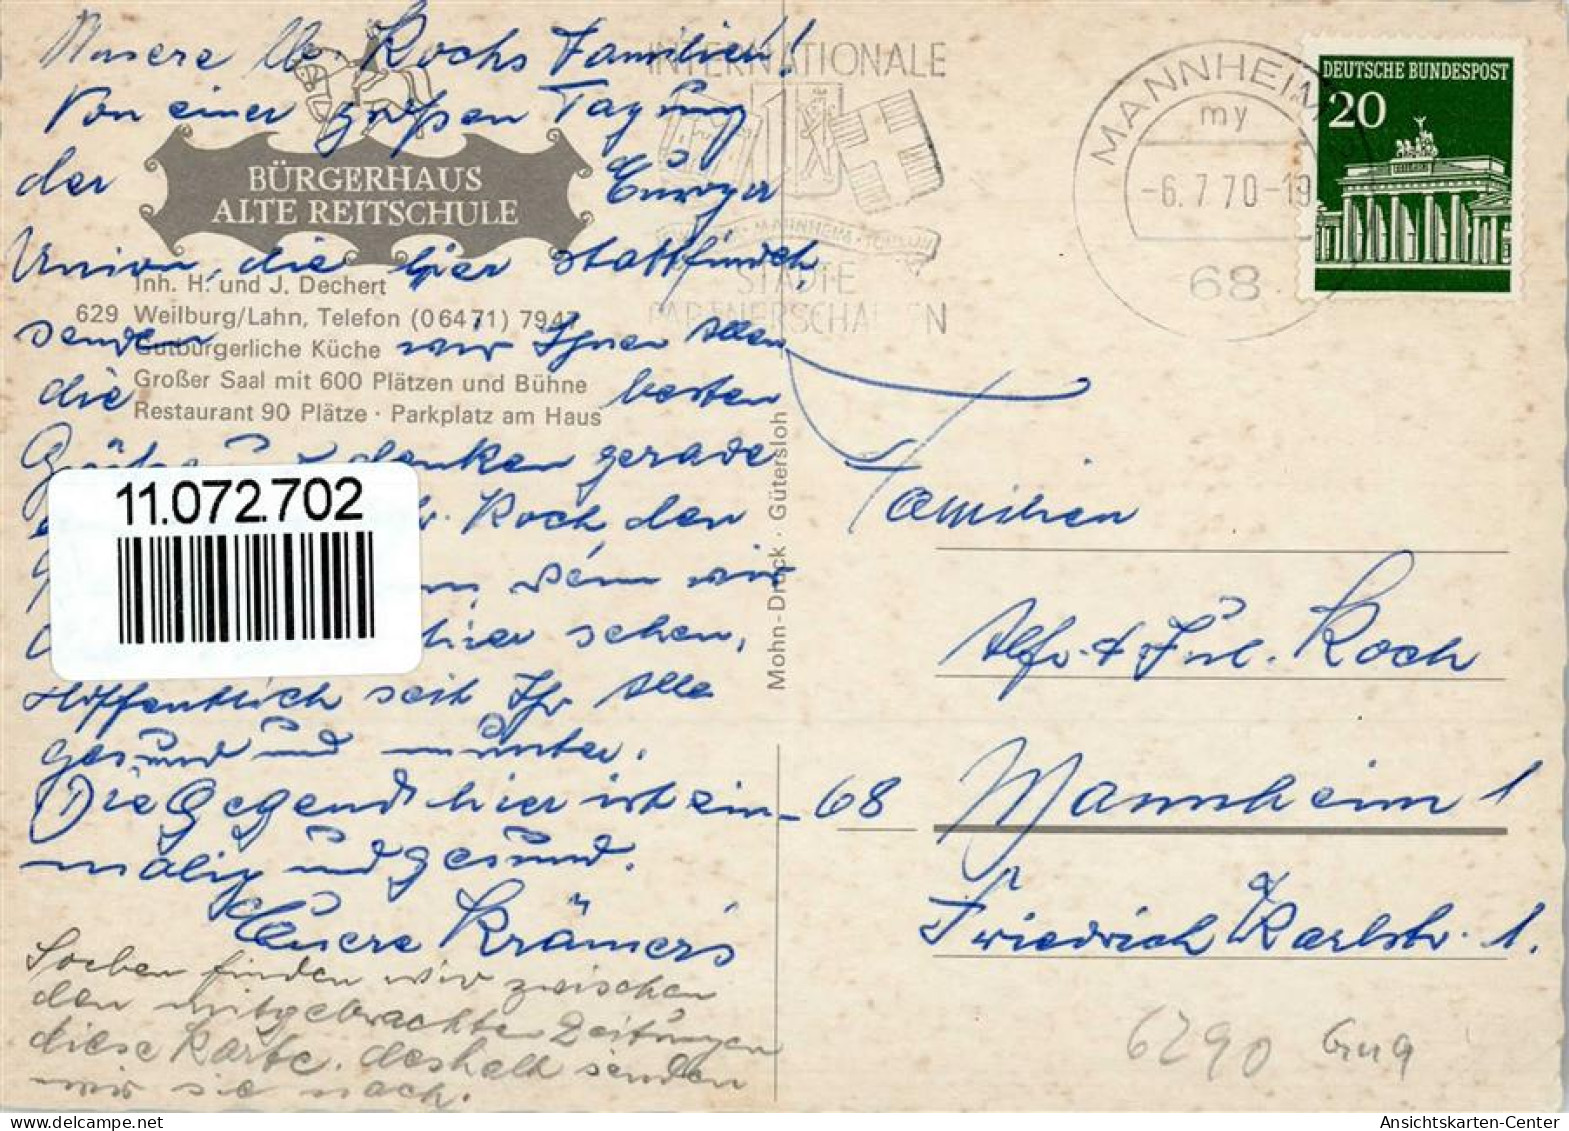 Unsere lb. Kochs Familien!
Von einer großen Tagung
der Europa
Union, die hier stattfindet,
senden wir Ihnen Allen
die besten
Grüße u. denken gerade
Koch, den
wenn wir
hier sehen,
Hoffentlich seit Ihr Alle
gesund und munter.
Die Gegend hier ist ein-
malig und gesund.
Euere Krämer's
Soeben finden wir zwischen
den mitgebrachten Zeitungen
diese Karte. deshalb senden
wir sie nach.
BÜRGERHAUS
ALTE REITSCHULE
Inh. H. und J. Dechert
629 Weilburg/Lahn, Telefon (06471) 7947
Gutbürgerliche Küche
Großer Saal mit 600 Plätzen und Bühne
Restaurant 90 Plätze · Parkplatz am Haus
11.072.702
Mohn-Druck · Gütersloh
INTERNATIONALE
MANNHEIM · TOULON
STÄDTE
PARTNERSCHAFTEN
MANNHEIM
my
-6.7.70-19
68
DEUTSCHE BUNDESPOST
20
Familien
Alfr. & Jul. Koch
68 Mannheim 1
Friedrich Karlstr. 1.
6290
Ansichtskarten-Center